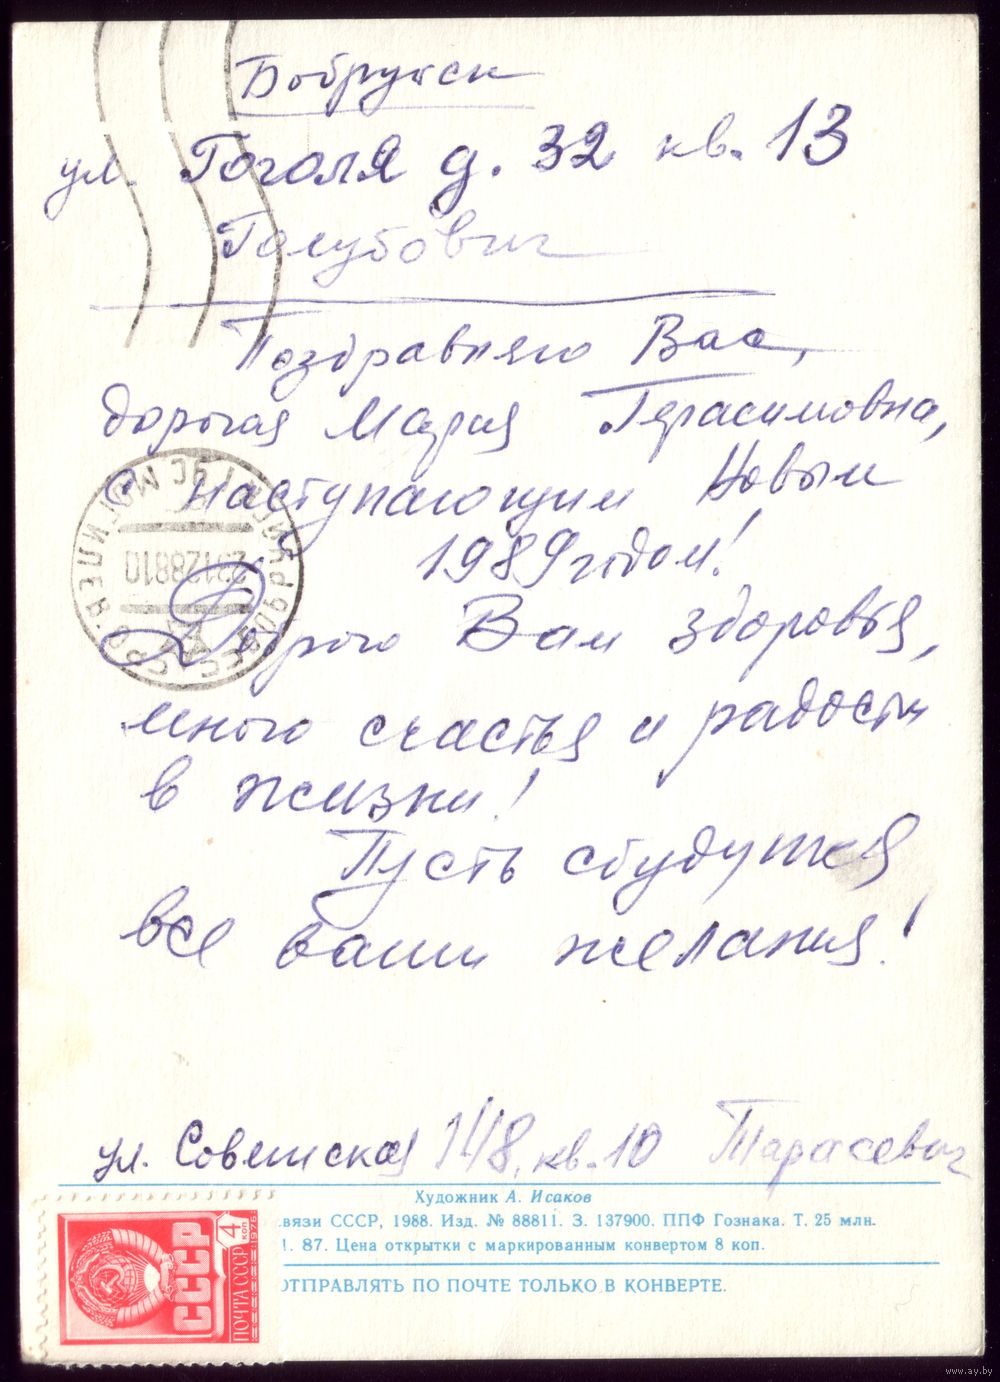 Бобруйск
ул. Гоголя д. 32 кв. 13
Голубович
Поздравляю Вас,
дорогая Мария Герасимовна,
с наступающим Новым
1989 годом!
Доброго Вам здоровья,
много счастья и радости
в жизни!
Пусть сбудутся
все ваши желания!
ул. Советская 148, кв. 10 Тарасевич
Художник А. Исаков
вязи СССР, 1988. Изд. № 88811. З. 137900. ППФ Гознака. Т. 25 млн.
87. Цена открытки с маркированным конвертом 8 коп.
ОТПРАВЛЯТЬ ПО ПОЧТЕ ТОЛЬКО В КОНВЕРТЕ.
4 коп
1976
СССР
ПОЧТА СССР
www.ay.by